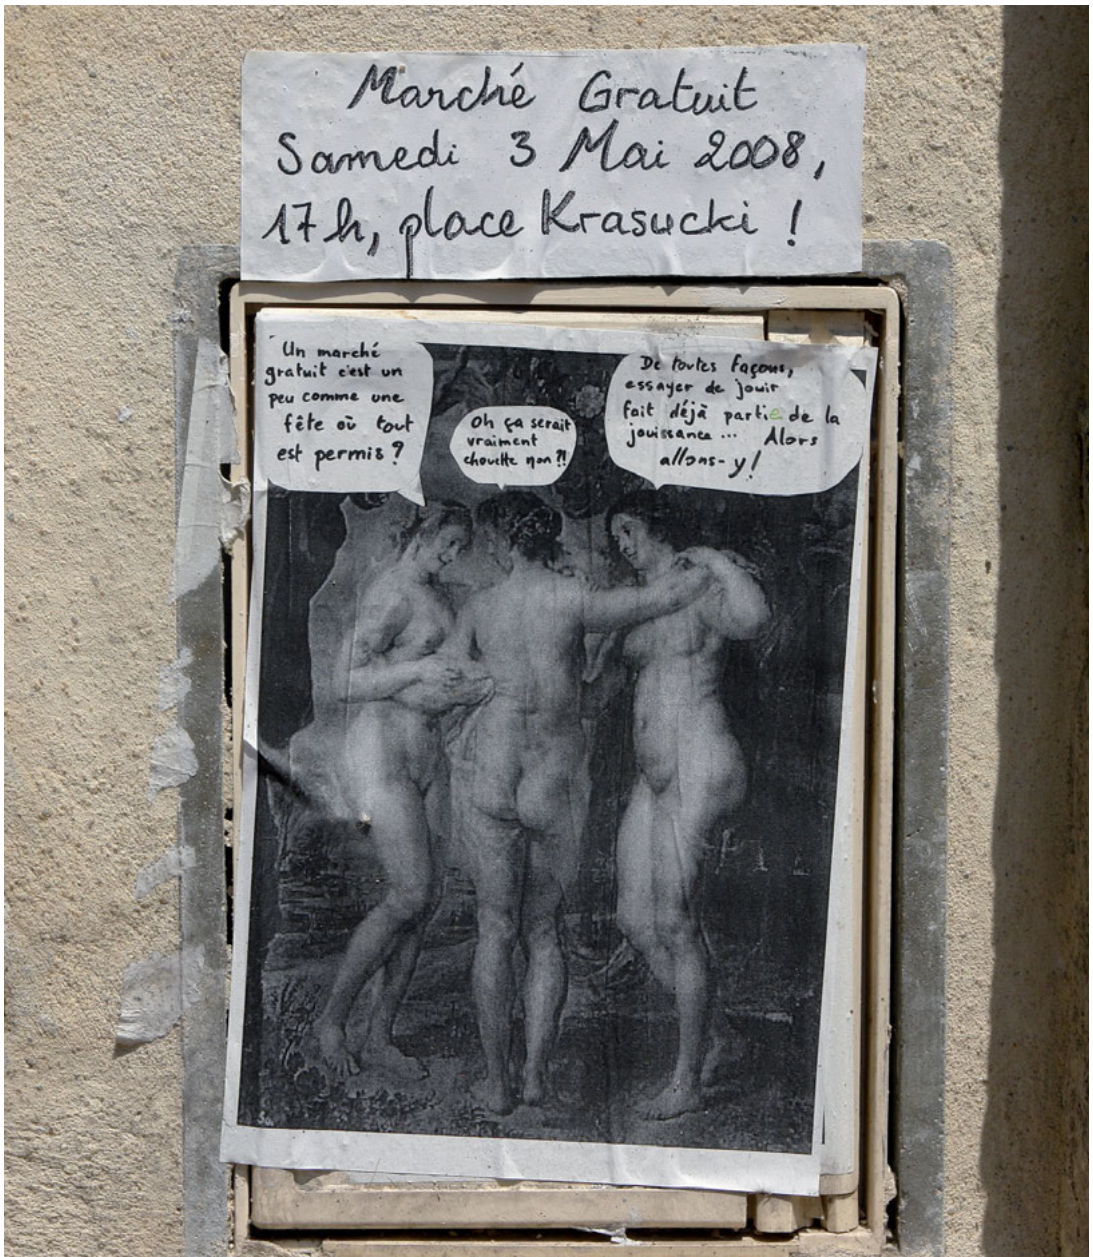 Marché Gratuit
Samedi 3 Mai 2008,
17h, place Krasucki !
Un marché
gratuit c'est un
peu comme une
fête où tout
est permis ?
Oh ça serait
vraiment
chouette non ?!
De toutes façons,
essayer de jouir
fait déjà partie de la
jouissance... Alors
allons-y !